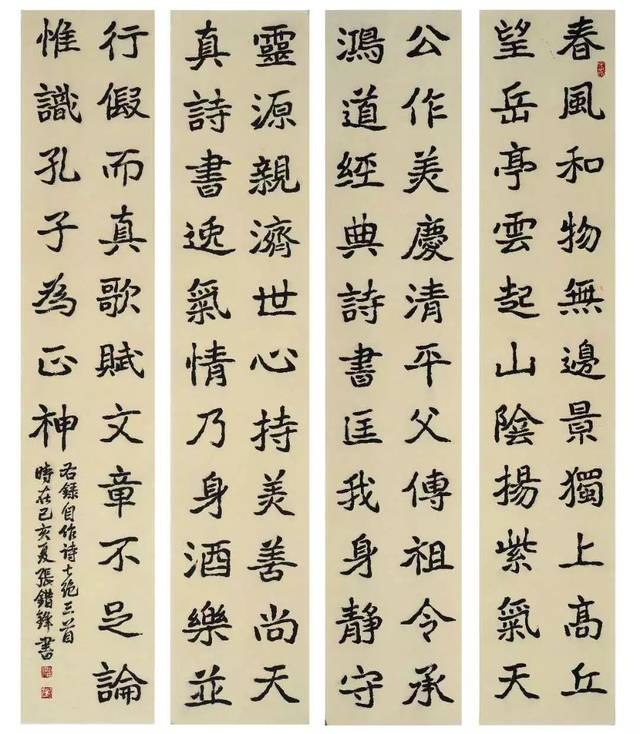 春風和物無邊景獨上高丘
望岳亭雲起山陰揚紫氣天
公作美慶清平父傳祖令承
鴻道經典詩書匡我身靜守
靈源親濟世心持美善尚天
真詩書逸氣情乃身酒樂並
行假而真歌賦文章不足論
惟識孔子為正神
右錄自作詩七絕三首
時在己亥夏張錯鋒書